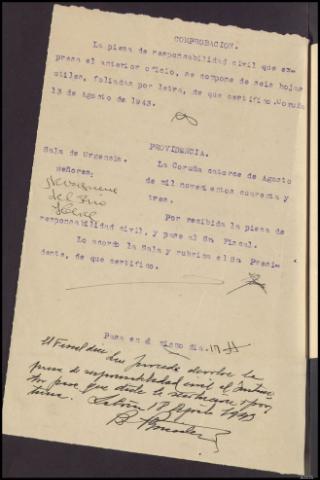 COMPROBACION.
La pieza de responsabilidad civil que ex-
presa el anterior oficio, se compone de seis hojas
utiles, foliadas por letra, de que certifico. Coruña
13 de Agosto de 1943.
PROVIDENCIA.
Sala de Urgencia.
señores:
La Coruña catorce de Agosto
de mil novecientos cuarenta y
tres.
del Rio
Por recibida la pieza de
responsabilidad civil, y pase al Sr. Fiscal.
Lo acordo la Sala y rubrica el Sr. Presi-
dente, de que certifico.
Pasa en el mismo dia.
El Fiscal dice que procede devolver la
pieza de responsabilidad civil al
que dicte la
18 Agosto 1943